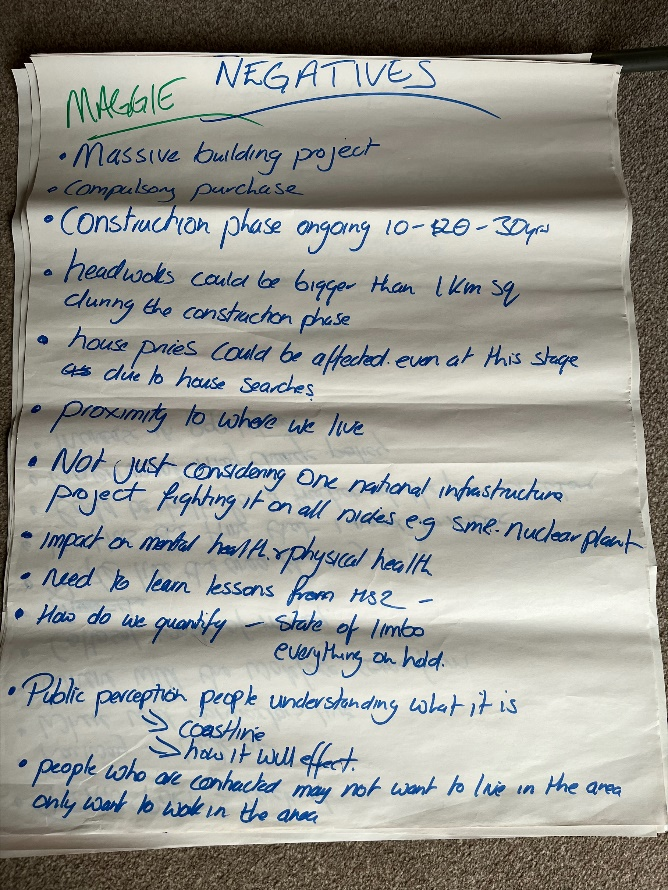 NEGATIVES
MAGGIE
• Massive building project
• Compulsory purchase
• Construction phase ongoing 10-20-30yrs
• headwoks could be bigger than 1km sq
during the construction phase
• house prices could be affected. even at this stage
due to house searches
• proximity to where we live
• Not just considering one national infrastructure
project fighting it on all sides e.g SMR. nuclear plant
• Impact on mental health. & physical health
• Need to learn lessons from HS2 -
• How do we quantify - State of limbo
everything on hold.
• Public perception people understanding what it is
> coastline
> how it will effect.
• people who are contracted may not want to live in the area
only want to work in the area